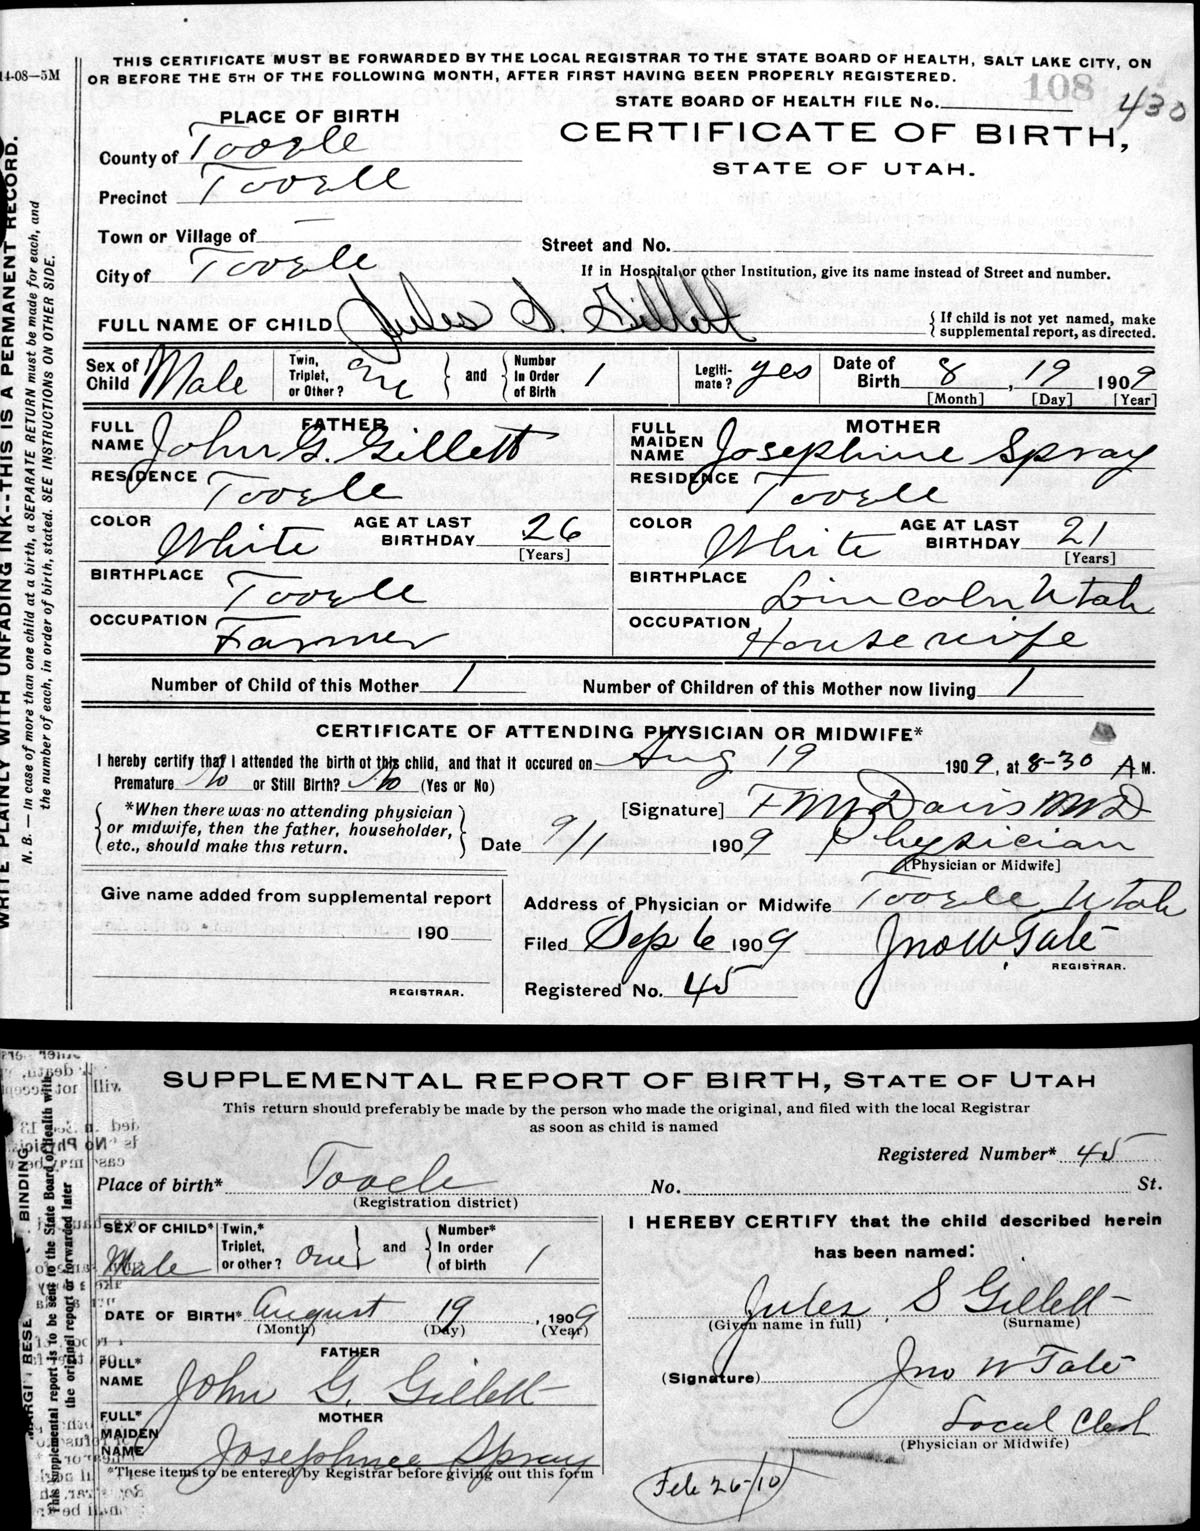 14-08—5M
THIS CERTIFICATE MUST BE FORWARDED BY THE LOCAL REGISTRAR TO THE STATE BOARD OF HEALTH, SALT LAKE CITY, ON
OR BEFORE THE 5TH OF THE FOLLOWING MONTH, AFTER FIRST HAVING BEEN PROPERLY REGISTERED.
108
STATE BOARD OF HEALTH FILE No. 430
PLACE OF BIRTH
CERTIFICATE OF BIRTH,
STATE OF UTAH.
County of Tooele
Precinct Tooele
Town or Village of —
Street and No.
City of Tooele
If in Hospital or other Institution, give its name instead of Street and number.
FULL NAME OF CHILD Jules S. Gillett
{ If child is not yet named, make
supplemental report, as directed.
Sex of Child Male Twin, Triplet, or Other? One } and { Number In Order of Birth 1 Legiti-mate? yes Date of Birth 8, 19 1909
[Month] [Day] [Year]
FATHER
FULL NAME John G. Gillett
RESIDENCE Tooele
COLOR White AGE AT LAST BIRTHDAY 26 [Years]
BIRTHPLACE Tooele
OCCUPATION Farmer
MOTHER
FULL MAIDEN NAME Josephine Spray
RESIDENCE Tooele
COLOR White AGE AT LAST BIRTHDAY 21 [Years]
BIRTHPLACE Lincoln Utah
OCCUPATION Housewife
Number of Child of this Mother 1 Number of Children of this Mother now living 1
CERTIFICATE OF ATTENDING PHYSICIAN OR MIDWIFE*
I hereby certify that I attended the birth of this child, and that it occured on Aug 19 1909, at 8-30 A M.
Premature No or Still Birth? No (Yes or No)
{ *When there was no attending physician
or midwife, then the father, householder,
etc., should make this return. }
[Signature] F M Davis MD
Date 9/1 1909 Physician
[Physician or Midwife]
Give name added from supplemental report
190
REGISTRAR.
Address of Physician or Midwife Tooele Utah
Filed Sep 6 1909 Jno W. Tate
REGISTRAR.
Registered No. 45
WRITE PLAINLY WITH UNFADING INK--THIS IS A PERMANENT RECORD.
N. B. — In case of more than one child at a birth, a SEPARATE RETURN must be made for each, and
the number of each, in order of birth, stated. SEE INSTRUCTIONS ON OTHER SIDE.
SUPPLEMENTAL REPORT OF BIRTH, STATE OF UTAH
This return should preferably be made by the person who made the original, and filed with the local Registrar
as soon as child is named
Registered Number* 45
Place of birth* Tooele No. St.
(Registration district)
SEX OF CHILD* Male Twin,* Triplet, or other? One } and { Number* In order of birth 1
DATE OF BIRTH* August 19, 1909
(Month) (Day) (Year)
FATHER
FULL* NAME John G. Gillett
MOTHER
FULL* MAIDEN NAME Josephnee Spray
*These items to be entered by Registrar before giving out this form
I HEREBY CERTIFY that the child described herein
has been named:
Jules S Gillett
(Given name in full) (Surname)
(Signature) Jno W Tate
Local Clerk
(Physician or Midwife)
Feb 26-/10
BINDING
This supplemental report is to be sent to the State Board of Health with
the original report or forwarded later